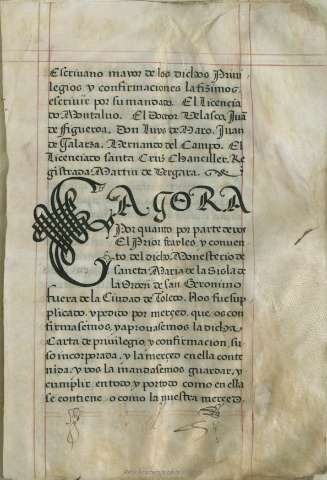 Escrivano mayor de los dichos Privi
legios y confirmaciones la fizimos
escrivir por su mandado. El Licencia
do Montalvo. El Doctor Velasco, Juā
de Figueroa. Don Luys de Haro. Juan
de Galarza. Hernando del Campo. El
Licenciado santa Crus Chanciller. Re
gistrada. Martin de Vergara.
E AGORA
Por quanto por parte de vos
El Prior frayles y conven
to del dicho Monesterio de
sancta Maria de la Sisla de
la Orden de san Geronimo
fuera de la Ciudad de Toledo. Nos fue su
plicado. y pedido por merçed, que os con
firmasemos, y aprovasemos la dicha
Carta de privilegio y confirmacion, su
so incorporada, y la merced en ella conte
nida. y vos la mandasemos guardar, y
cumplir en todo y por todo como en ella
se contiene. o como la nuestra merced